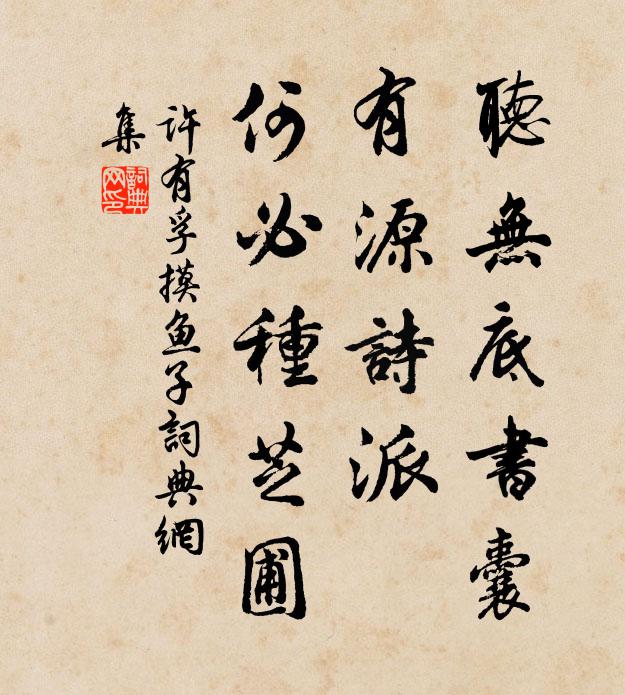 聽無底書囊
有源詩派
何必種芝圃
许有孚摸鱼子詞典網
集
詞典網印